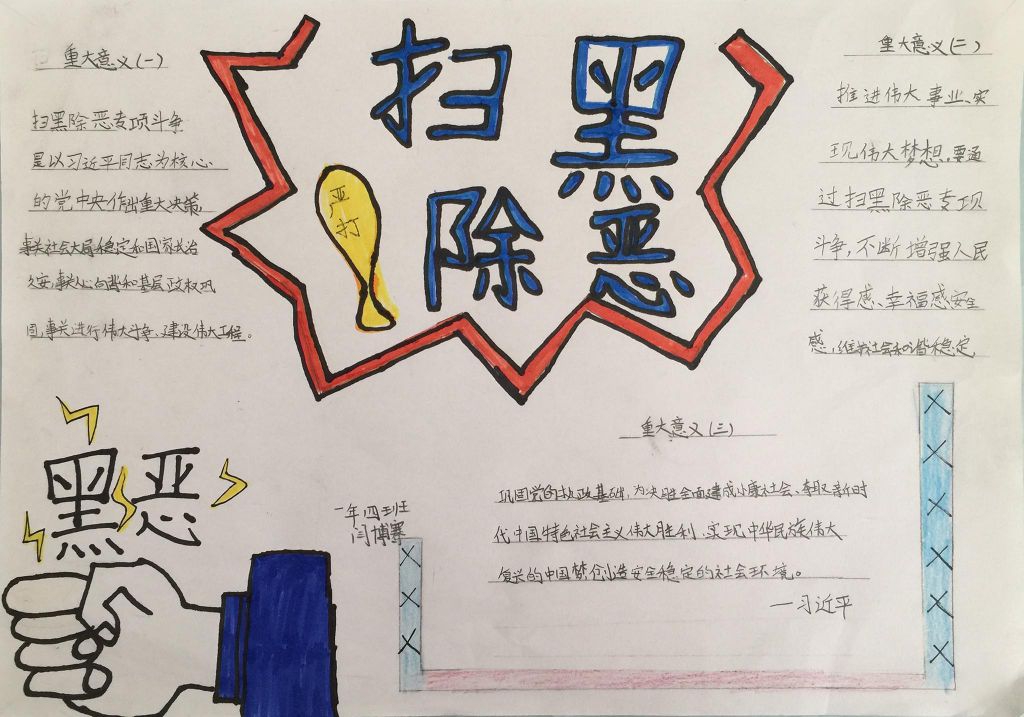 重大意义(一)
扫黑除恶专项斗争
是以习近平同志为核心
的党中央作出重大决策,
事关社会大局稳定和国家长治
久安,事关人心向背和基层政权巩
固,事关进行伟大斗争、建设伟大工程。
扫黑
除恶
严打
重大意义(二)
推进伟大事业、实
现伟大梦想,要通
过扫黑除恶专项
斗争,不断增强人民
获得感、幸福感、安全
感,维护社会和谐稳定
黑恶
一年四班
闫博塞
重大意义(三)
巩固党的执政基础,为决胜全面建成小康社会、夺取新时
代中国特色社会主义伟大胜利、实现中华民族伟大
复兴的中国梦创造安全稳定的社会环境。
—习近平